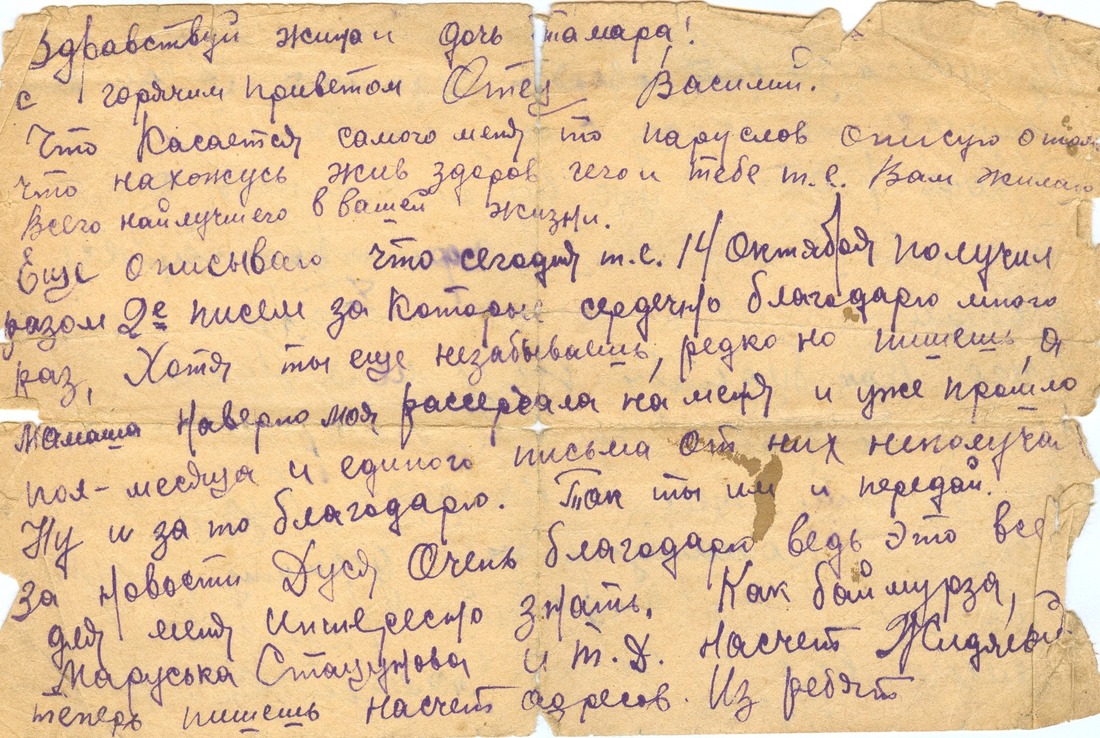 Здравствуй жина и дочь Тамара!
с горячим приветом Отец Василий.
Что касается самого меня то паруслов описую о том
что нахожусь жив здоров чего и тебе т.е. Вам жилаю
Всего найлучшего в вашей жизни.
Еще описываю что сегодня т.е. 14 Октября получил
разом 2е писем за которые сердечно благодарю много
раз, Хотя ты еще незабываешь, редко но пишешь, а
мамаша наверно моя рассердала на меня и уже прошло
пол-месяца и единого письма от них неполуча
Ну и за то благодарю. Так ты им и передай.
За новости Дуся Очень благодарю ведь это все
для меня интересно знать. Как баймурза,
Маруська Стацунова и т.д. насчет
теперь пишешь насчет адресов. Из ребят